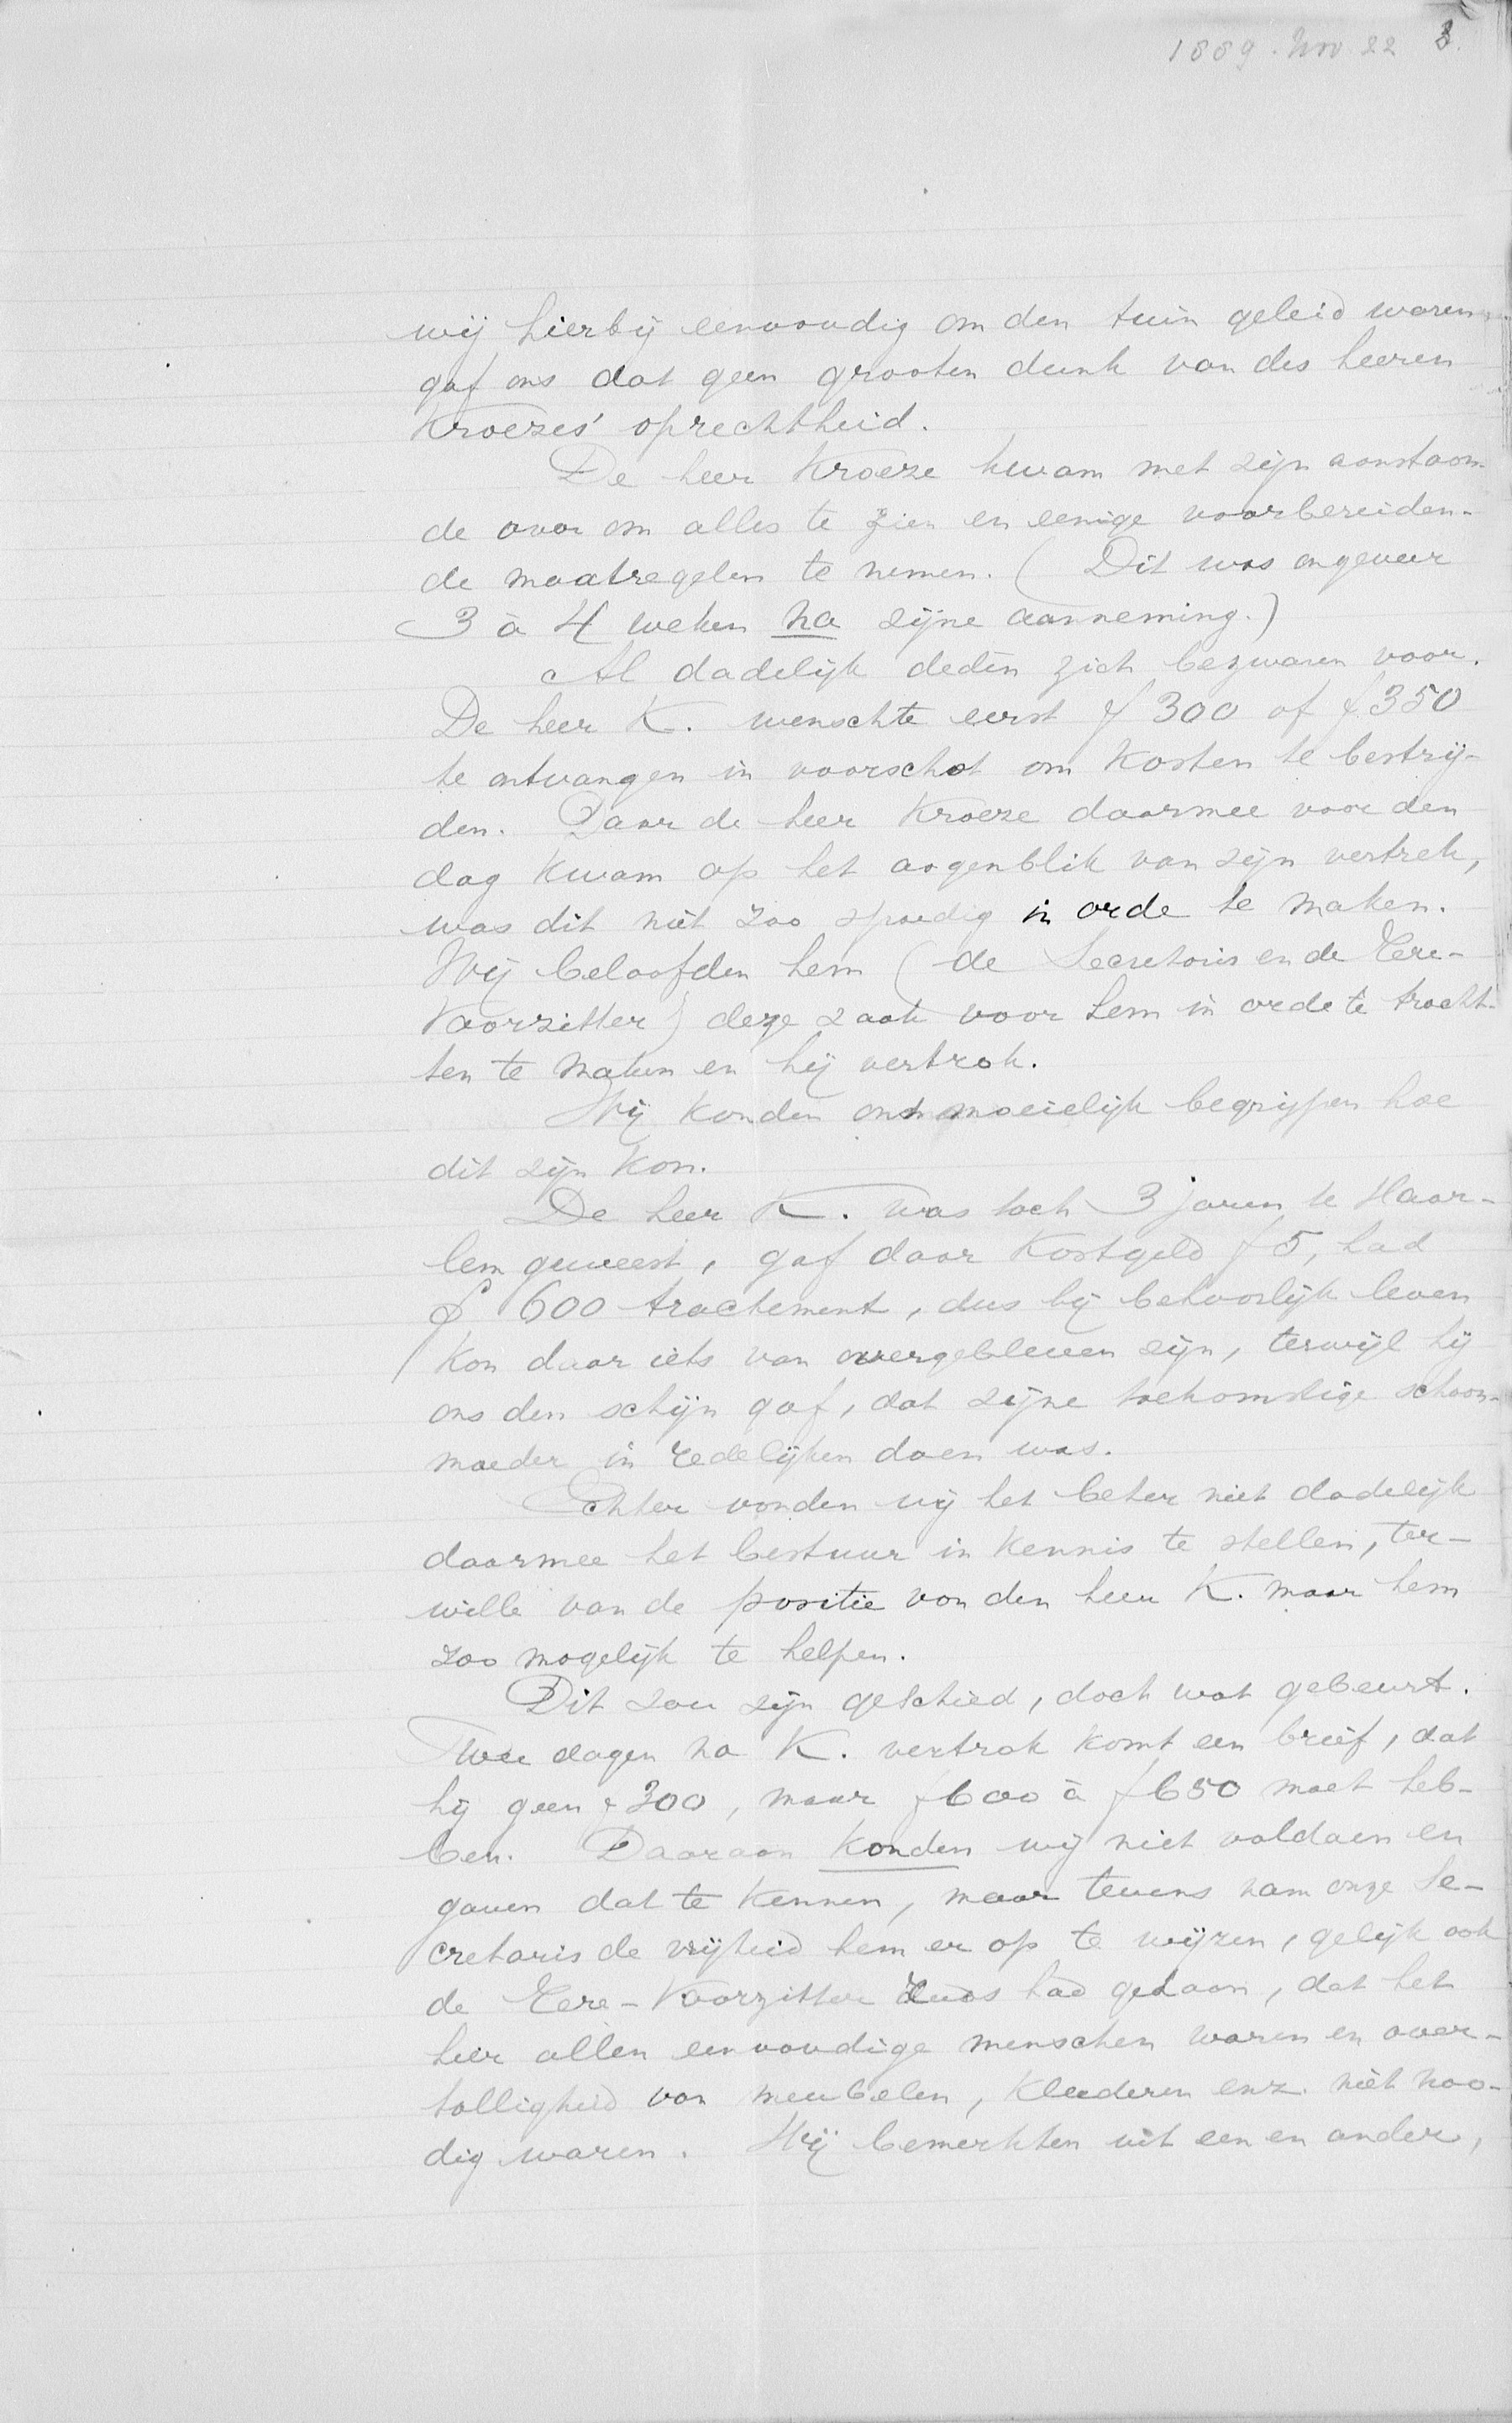 1889. Nov 22 3.
wij hierbij eenvoudig om den tuin geleid waren,
gaf ons dat geen grooten dunk van des heeren
Kroezes' oprechtheid.
De heer Kroeze kwam met zijn aanstaan-
de over om alles te zien en eenige voorbereiden-
de maatregelen te nemen. (Dit was ongeveer
3 à 4 weken na zijne aanneming.)
Al dadelijk deden zich bezwaren voor.
De heer K. wenschte eerst f 300 of f 350
te ontvangen in voorschot om kosten te bestrij-
den. Daar de heer Kroeze daarmee voor den
dag kwam op het oogenblik van zijn vertrek,
was dit niet zoo spoedig in orde te maken.
Wij beloofden hem (de Secretaris en de Eere-
Voorzitter) deze zaak voor hem in orde te tracht-
ten te maken en hij vertrok.
Wij konden ons moeielijk begrijpen hoe
dit zijn kon.
De heer K. was toch 3 jaren te Haar-
lem geweest, gaf daar kostgeld f 5, had
f 600 tractement, dus bij behoorlijk leven
kon daar iets van overgebleven zijn, terwijl hij
ons den schijn gaf, dat zijne toekomstige schoon-
moeder in redelijken doen was.
Echter vonden wij het beter niet dadelijk
daarmee het bestuur in kennis te stellen, ter-
wille van de positie van den heer K. maar hem
zoo mogelijk te helpen.
Dit zou zijn geschied, doch wat gebeurt.
Twee dagen na K. vertrok komt een brief, dat
hij geen f 300, maar f 600 à f 650 moet heb-
ben. Daaraan konden wij niet voldoen en
gaven dat te kennen, maar tevens nam onze Se-
cretaris de vrijheid hem er op te wijzen, gelijk ook
de Eere-Voorzitter had gedaan, dat het
hier allen eenvoudige menschen waren en over-
tolligheid van meubelen, kleederen enz. niet noo-
dig waren. Wij bemerkten uit een en ander,